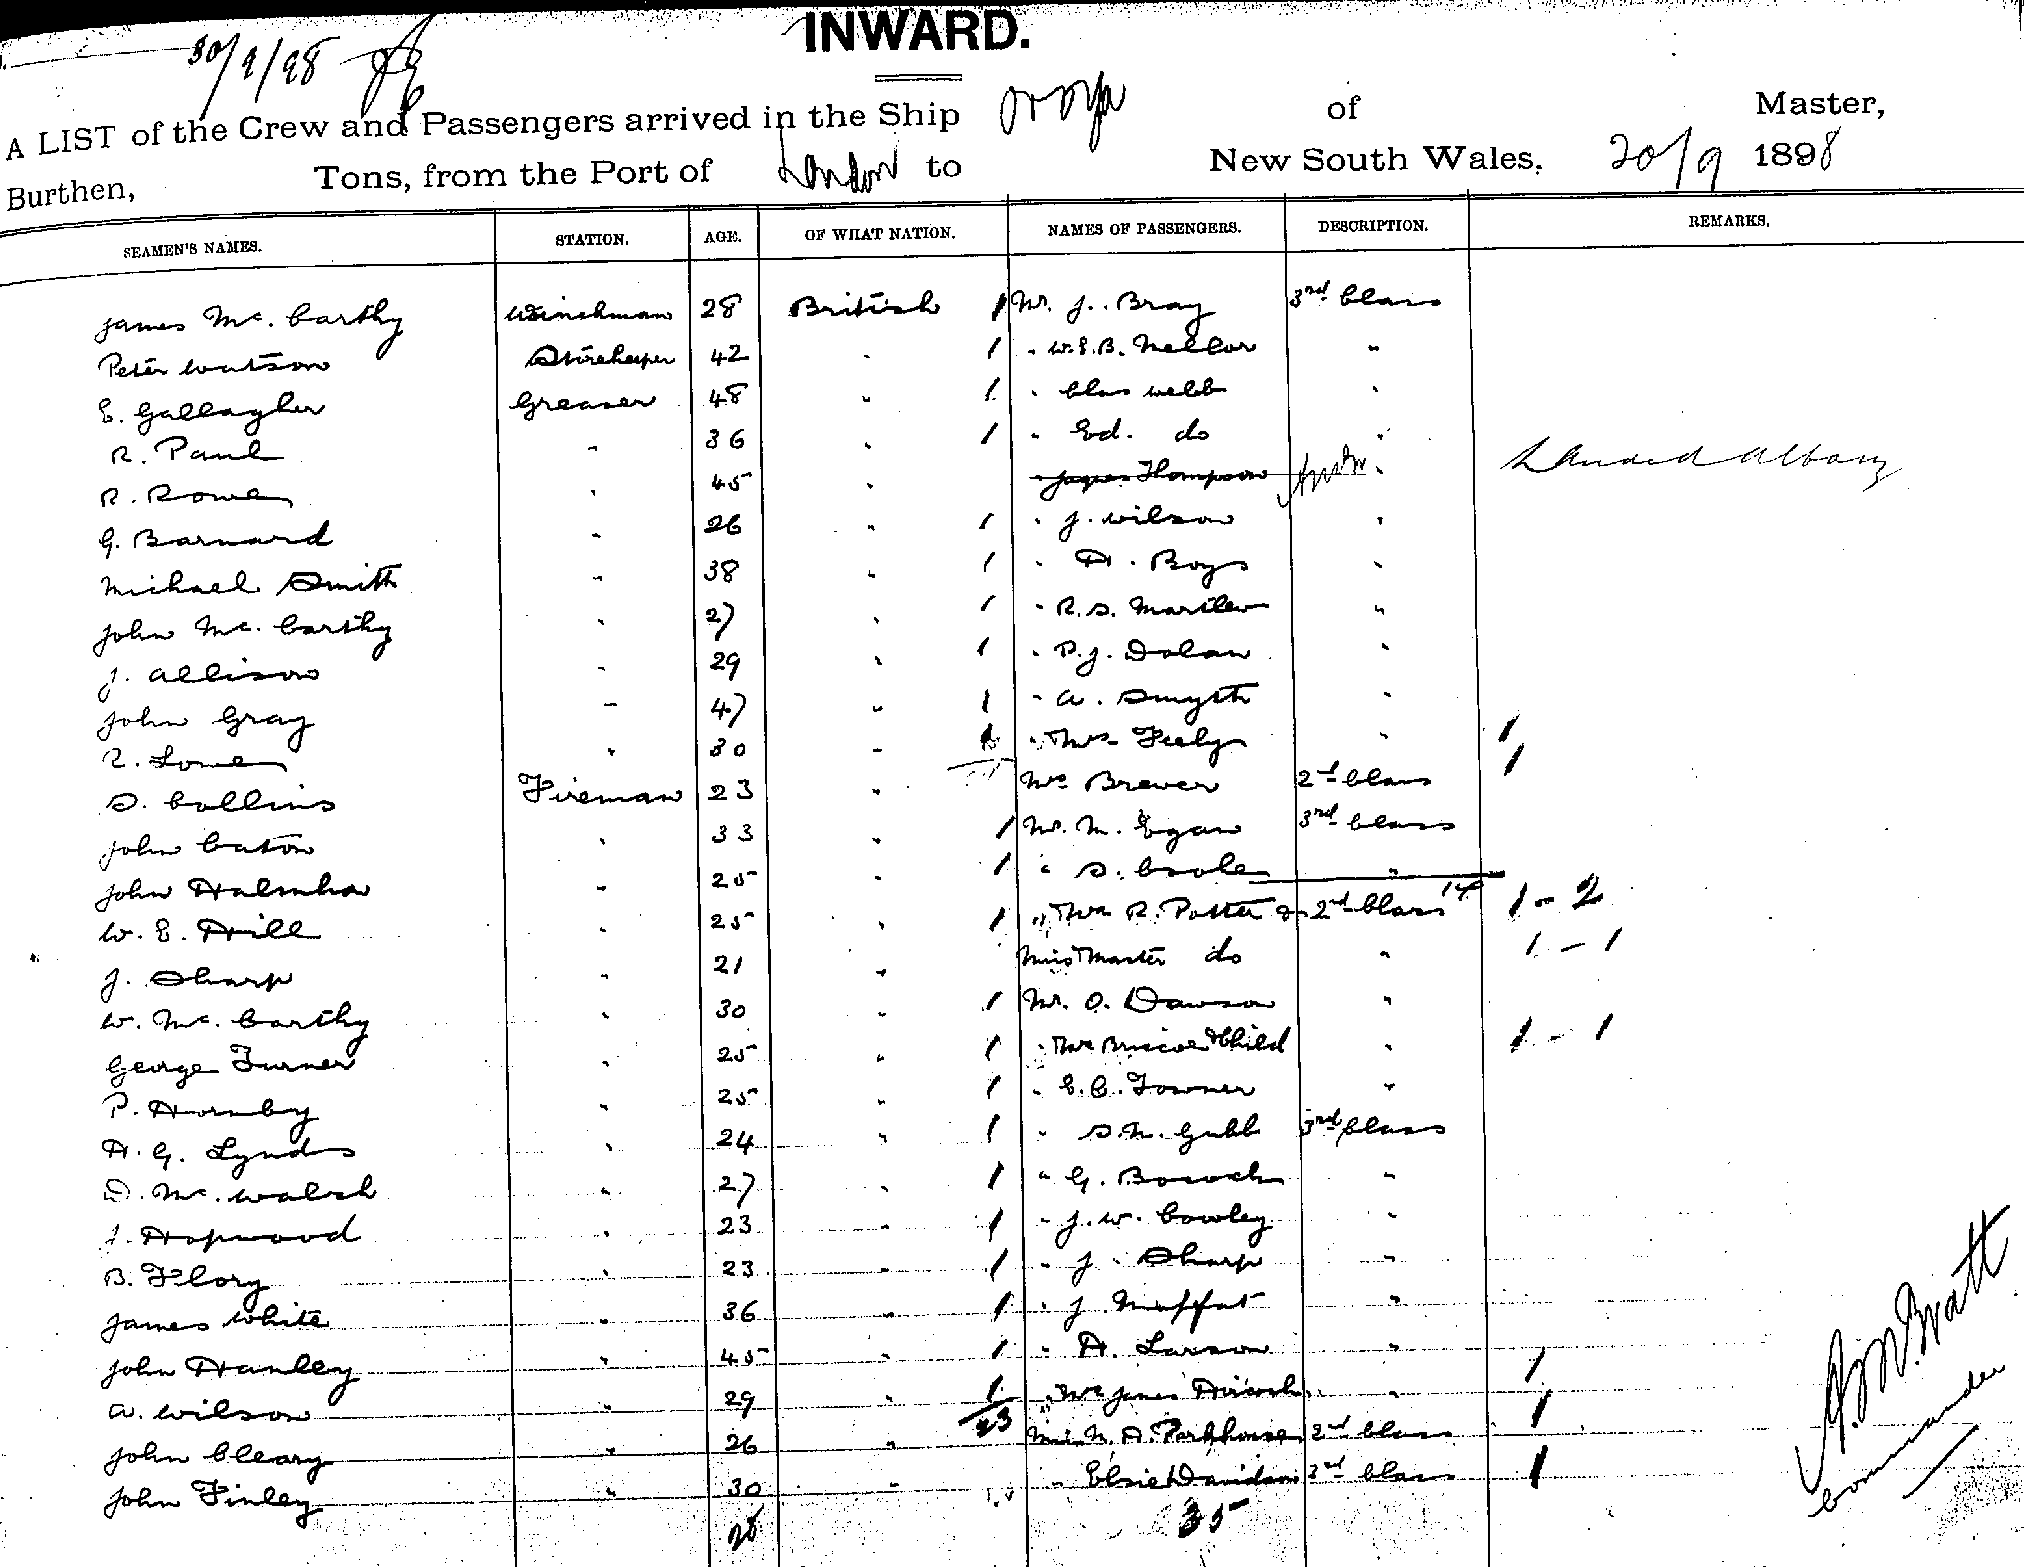 INWARD.
30/9/98
A LIST of the Crew and Passengers arrived in the Ship Oroya of Master,
Burthen, Tons, from the Port of London to New South Wales. 20/9 1898
SEAMEN'S NAMES. STATION. AGE. OF WHAT NATION. NAMES OF PASSENGERS. DESCRIPTION. REMARKS.
James Mc. Carthy Winchman 28 British 1 Mr. J. Bray 3rd Class
Peter Watson Storekeeper 42 " 1 " W.E.B. Mellor "
E. Gallagher Greaser 48 " 1 " Chas Webb "
R. Paul " 36 " 1 " Ed. do "
R. Rowe " 45 " " James Thompson " Landed Albany
G. Barnard " 26 " 1 " J. Wilson "
Michael Smith " 38 " 1 " H. Boys "
John Mc. Carthy " 27 " 1 " R.S. Martlew "
J. Allison " 29 " 1 " P.J. Dolan "
John Gray " 47 " 1 " A. Smyth "
R. Lowe " 30 " " Mrs Feely " 1
S. Collins Fireman 23 " Mrs Brewer 2nd Class 1
John Caton " 33 " 1 Mr. M. Egan 3rd Class
John " 25 " 1 " S. Coole "
W. E. Hill " 25 " 1 " Mrs R. Potter & 2nd Class 14 1 - 2
J. Sharp " 21 " Miss Master do " 1 - 1
W. Mc. Carthy " 30 " 1 Mr. O. Dawson "
George Turner " 25 " 1 " Mrs Briscoe & Child " 1 - 1
P. Hornby " 25 " 1 " E. C. Towner "
H. G. Lynds " 24 " 1 " S. N. Gubb 3rd Class
D. Mc. Walsh " 27 " 1 " G. "
J. Hopwood " 23 " 1 " J. W. Cowley "
B. Flory " 23 " 1 " J. Sharp "
James White " 36 " 1 " J. Moffat "
John Hanley " 45 " 1 " H. Larson "
A. Wilson " 29 " 1 " Mrs James " 1
John Cleary " 26 " 23 Miss M. A. Parkhouse 2nd Class 1
John Finley " 30 " " Elsie Davidson 2nd Class 1
28 35
Commander